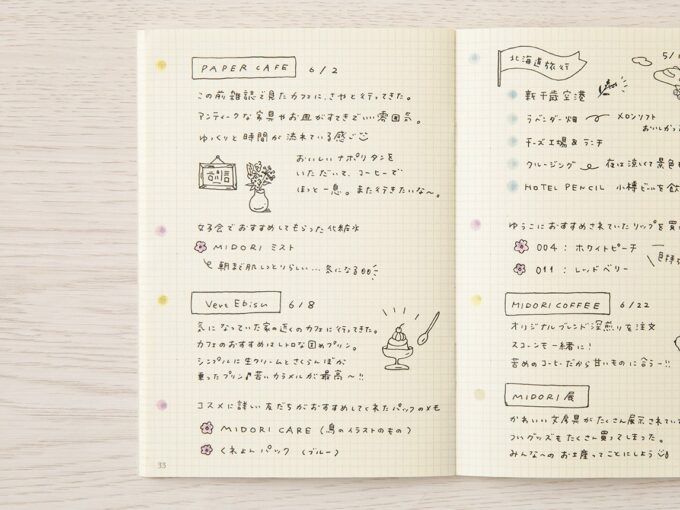 PAPER CAFE 6/2
この前雑誌で見たカフェに、さやと行ってきた。
アンティークな家具やお皿がすてきでいい雰囲気。
ゆっくりと時間が流れている感じ
おいしいナポリタンを
いただいて、コーヒーで
ほっと一息。また行きたいな〜。
女子会でおすすめしてもらった化粧水
MIDORI ミスト
朝まで肌しっとりらしい...気になる
Vert Ebisu 6/8
気になっていた家の近くのカフェに行ってきた。
カフェのおすすめはレトロな固めプリン。
シンプルに生クリームとさくらんぼが
乗ったプリン♪苦いカラメルが最高〜!!
コスメに詳しい友だちがおすすめしてくれたパックのメモ
MIDORI CARE (鳥のイラストのもの)
くれよんパック (ブルー)
33
北海道旅行 5/
新千歳空港
ラベンダー畑 メロンソフト
おいしかっ
チーズ工場 & ランチ
クルージング 夜は涼しくて景色
HOTEL PENCIL 小樽ビールを飲
ゆうこにおすすめされていたリップを買
004 : ホワイトピーチ
011 : レッドベリー
色持ち
MIDORI COFFEE 6/22
オリジナルブレンド深煎りを注文
スコーンも一緒に!
苦めのコーヒーだから甘いものに合う〜!!
MIDORI 展
かわいい文房具がたくさん展示されてい
ついグッズもたくさん買ってしまった。
みんなへのお土産ってことにしよう